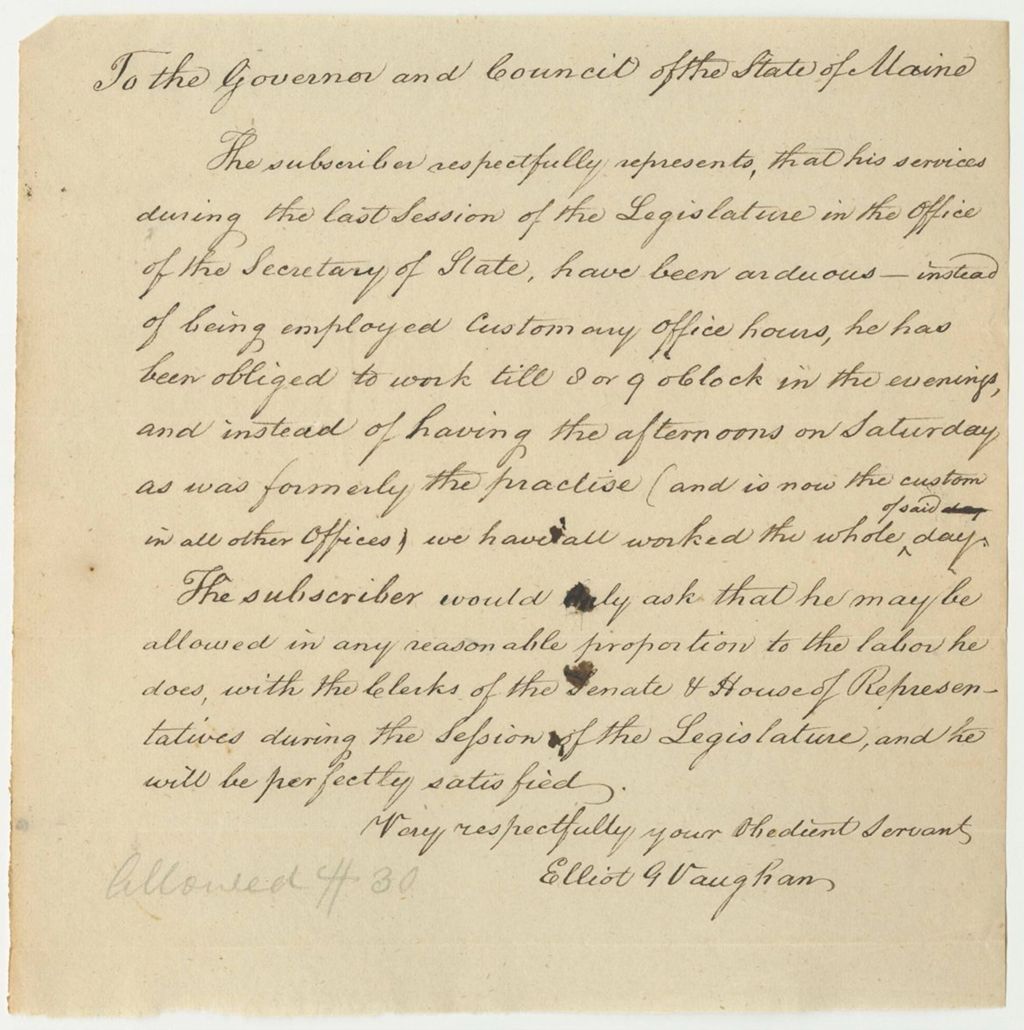 To the Governor and Council of the State of Maine
The subscriber respectfully represents, that his services
during the last Session of the Legislature in the Office
of the Secretary of State, have been arduous — instead
of being employed Customary Office hours, he has
been obliged to work till 8 or 9 oClock in the evenings,
and instead of having the afternoons on Saturday
as was formerly the practise (and is now the custom
of said day
in all other Offices) we have all worked the whole ^ day.
The subscriber would only ask that he may be
allowed in any reasonable proportion to the labor he
does, with the Clerks of the Senate & House of Represen-
tatives during the Session of the Legislature, and he
will be perfectly satisfied.
Very respectfully your Obedient Servant
Elliot G Vaughan
Allowed $ 30